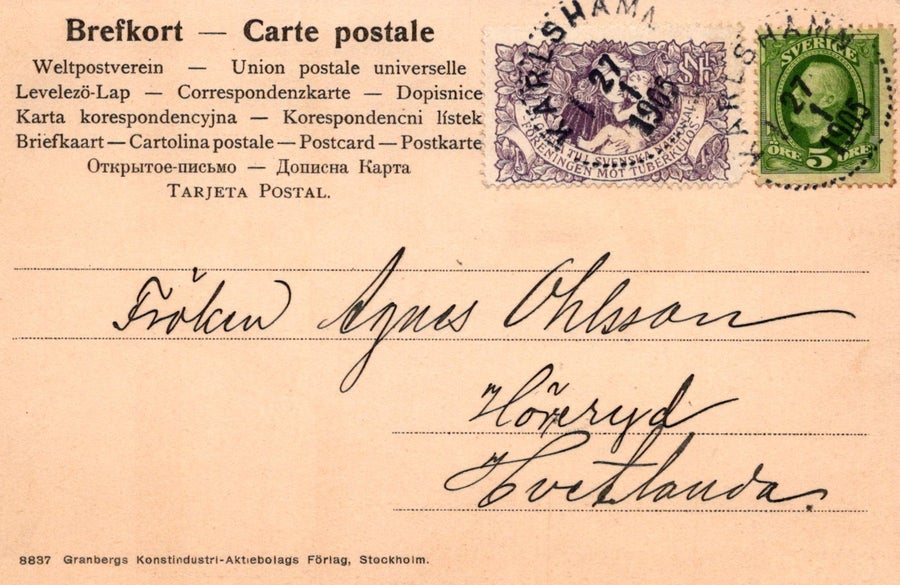 Brefkort — Carte postale
Weltpostverein — Union postale universelle
Levelezö-Lap — Correspondenzkarte — Dopisnice
Karta korespondencyjna — Korespondencni lístek
Briefkaart — Cartolina postale — Postcard — Postkarte
Открытое-письмо — Дописна Карта
TARJETA POSTAL.
KARLSHAMN
27
1
1905
TILL SVENSKA NATIONAL
FÖRENINGEN MOT TUBERKULOS
KARLSHAMN
27
1
1905
SVERIGE
ÖRE 5 ÖRE
Fröken Agnes Ohlsson
Höreryd
Hvetlanda.
8837 Granbergs Konstindustri-Aktiebolags Förlag, Stockholm.